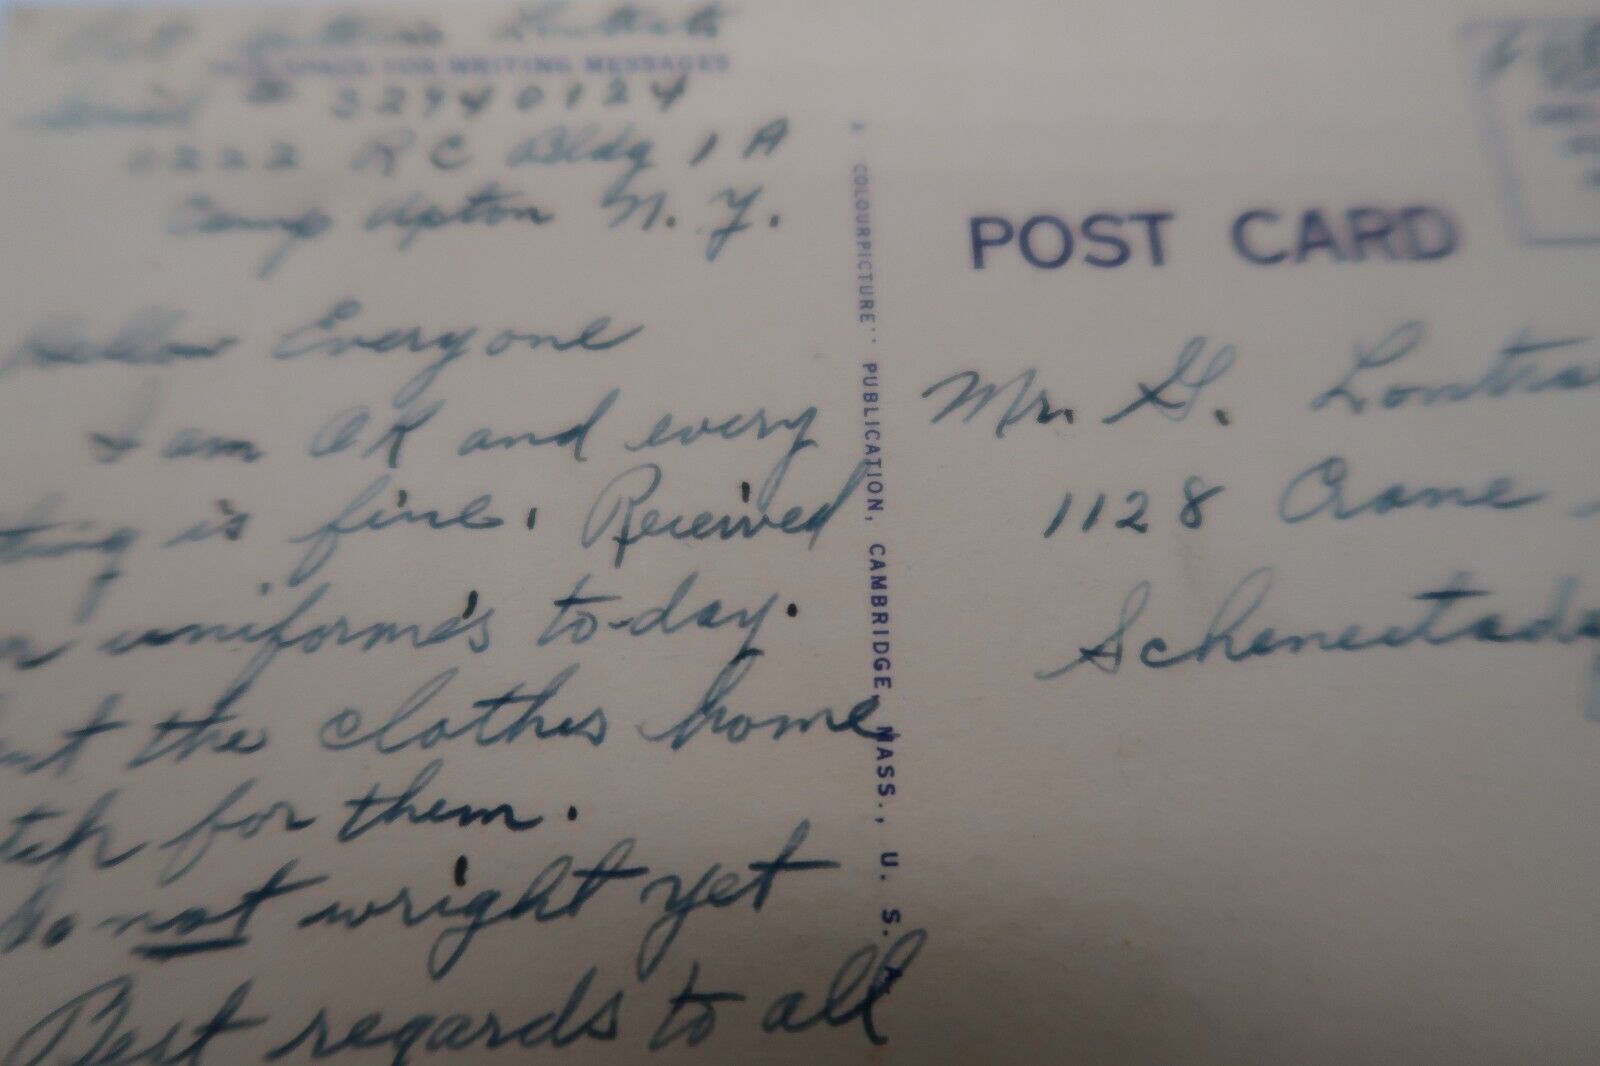 SPACE FOR WRITING MESSAGES
Serial # 32940124
1222 R C Bldg 1 A
Camp Upton N. Y.
Hellow Everyone
I am OK and every
thing is fine. Received
uniforme's to-day.
the clothes home
for them.
Do not wright yet
Best regards to all
COLOURPICTURE" PUBLICATION, CAMBRIDGE, MASS., U. S. A.
POST CARD
Mr. G.
1128 Crane
Schenectady